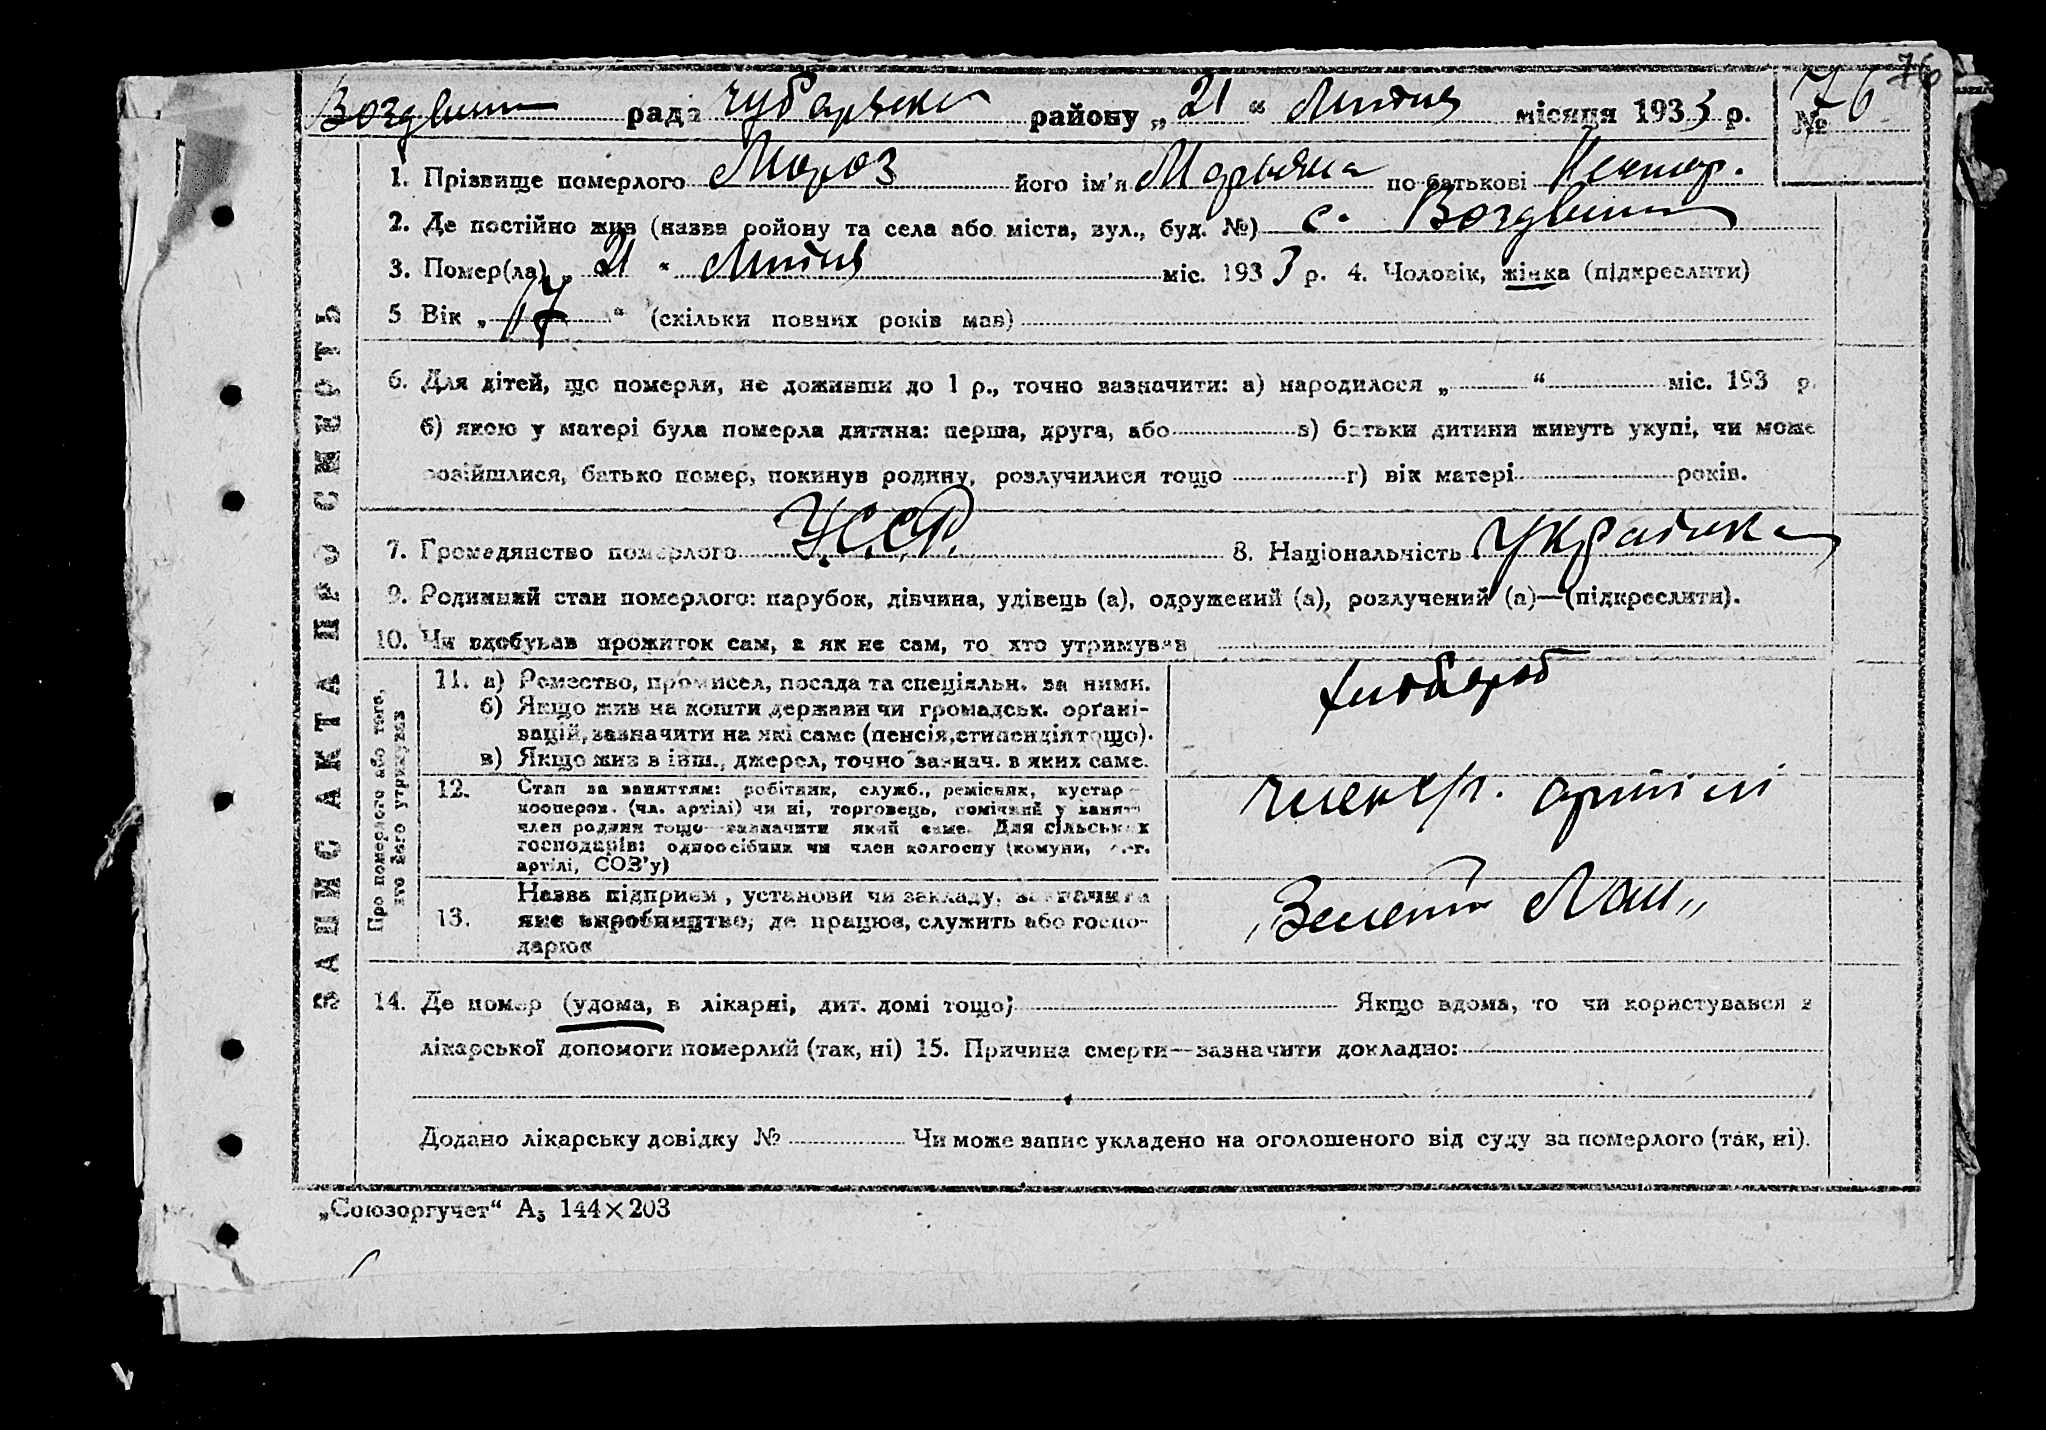 76
Воздвиж рада Чубарівська району „21“ Липня місяця 1933 р. № 76
1. Прізвище померлого Мороз його ім'я Мар'яна по батькові
2. Де постійно жив (назва району та села або міста, вул., буд. №) с. Воздвиж
3. Помер(ла) „21“ Липня міс. 1933 р. 4. Чоловік, жінка (підкреслити)
5 Вік „17“ (скільки повних років мав)
6. Для дітей, що померли, не доживши до 1 р., точно зазначити: а) народилося „ “ міс. 193 р.
б) якою у матері була померла дитина: перша, друга, або в) батьки дитини живуть укупі, чи може
розійшлися, батько помер, покинув родину, розлучилися тощо г) вік матері років.
7. Громадянство померлого У.С.С.Р. 8. Національність Українка
9. Родинний стан померлого: парубок, дівчина, удівець (а), одружений (а), розлучений (а)—(підкреслити).
10. Чи здобував прожиток сам, а як не сам, то хто утримував
ЗАПИС АКТА ПРО СМЕРТЬ
Про померлого або того,
хто його утримував
11. а) Ремество, промисел, посада та спеціяльн. за ними.
б) Якщо жив на кошти держави чи громадськ. орґані-
зацій, зазначити на які саме (пенсія, стипендія тощо).
в) Якщо жив з інш., джерел, точно зазнач. з яких саме.
хлібороб
12. Стан за заняттям: робітник, служб., ремісник, кустар-
кооперов. (чл. артілі) чи ні, торговець, помічний у занятт.
член родини тощо—зазначити який саме. Для сільських
господарів: одноосібник чи член колгоспу (комуни, с.-г.
артілі, СОЗ'у)
член с/г. артілі
13. Назва підприєм., установи чи закладу, зазначити
яке виробництво, де працює, служить або госпо-
дарює
„Зелений Лан„
14. Де помер (удома, в лікарні, дит. домі тощо) Якщо вдома, то чи користувався з
лікарської допомоги померлий (так, ні) 15. Причина смерти—зазначити докладно:
Додано лікарську довідку № Чи може запис укладено на оголошеного від суду за померлого (так, ні).
„Союзоргучет“ А₅ 144×203